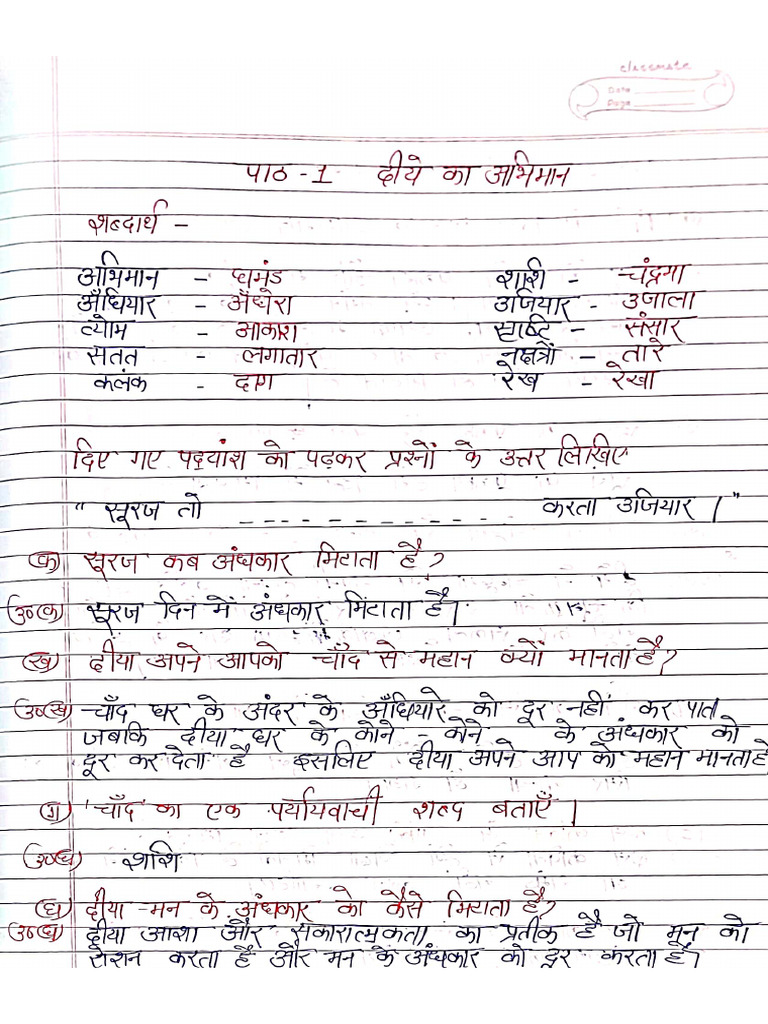 classmate
Date
Page
पाठ - 1 दीये का अभिमान
शब्दार्थ -
अभिमान - घमंड शशि - चंद्रमा
अँधियार - अँधेरा उजियार - उजाला
व्योम - आकाश सृष्टि - संसार
सतत - लगातार नक्षत्रों - तारे
कलंक - दाग रेख - रेखा
दिए गए पद्यांश को पढ़कर प्रश्नों के उत्तर लिखिए
" सूरज तो _ _ _ _ _ _ _ _ _ _ _ _ करता उजियार । "
(क) सूरज कब अंधकार मिटाता है?
उ०(क) सूरज दिन में अंधकार मिटाता है।
(ख) दीया अपने आपको चाँद से महान क्यों मानता है?
उ०(ख) चाँद घर के अंदर के अँधियारे को दूर नहीं कर पाता
जबकि दीया घर के कोने - कोने के अंधकार को
दूर कर देता है इसलिए दीया अपने आप को महान मानता है
(ग) 'चाँद' का एक पर्यायवाची शब्द बताएँ।
शशि
(घ) दीया मन के अंधकार को कैसे मिटाता है?
उ०(घ) दीया आशा और सकारात्मकता का प्रतीक है जो मन को
रोशन करता है और मन के अंधकार को दूर करता है।